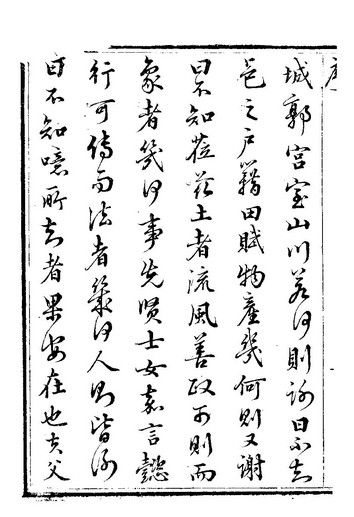 城郭宮室山川若何則謝曰不知
邑之戶籍田賦物產幾何則又謝
曰不知蒞茲土者流風善政可則而
象者幾何事先賢士女嘉言懿
行可傳而法者幾何人則皆謝
曰不知噫所知者果安在也夫父